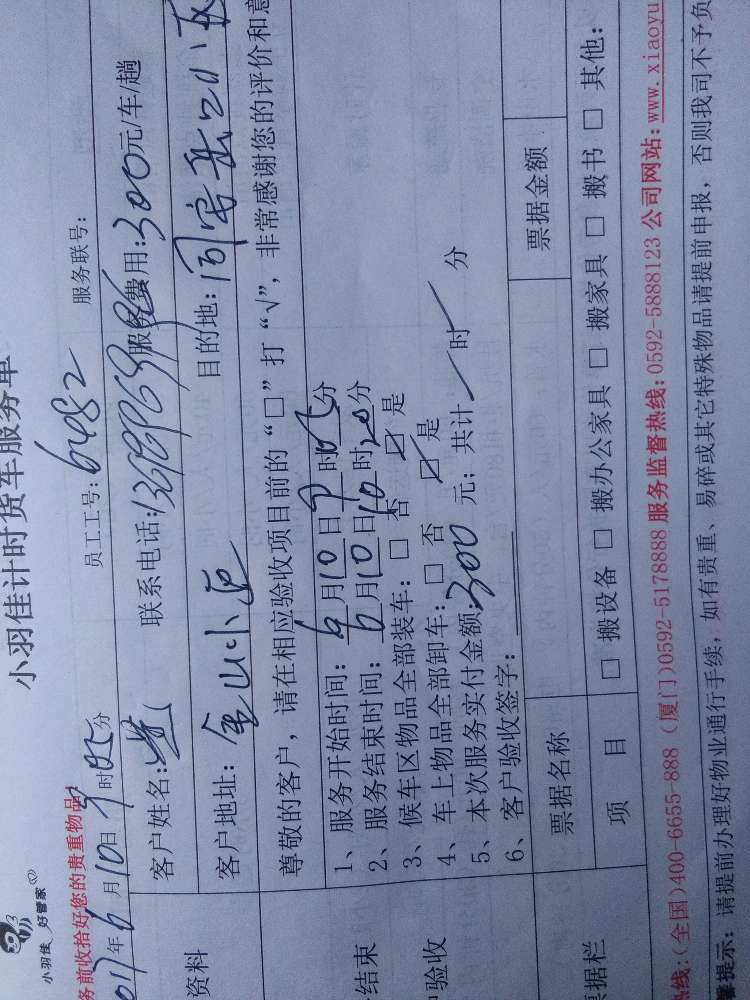 小羽佳 好管家
小羽佳计时货车服务单
务前收拾好您的贵重物品
员工工号:6482 服务联号:
2017年6月10日9时05分
客户姓名:
联系电话:
服务费用:300元/车/趟
资料
客户地址:金山小区 目的地:同安
尊敬的客户，请在相应验收项目前的“□”打“√”，非常感谢您的评价和意
1、服务开始时间:6月10日9时05分
2、服务结束时间:6月10日10时20分
3、候车区物品全部装车:□否 ☑是
4、车上物品全部卸车:□否 ☑是
结束
验收
5、本次服务实付金额:300元;共计 时 分
6、客户验收签字:
据栏
票据名称 票据金额
项目 □搬设备 □搬办公家具 □搬家具 □搬书 □其他:
热线:(全国)400-6655-888 (厦门)0592-5178888 服务监督热线:0592-5888123 公司网站:www.xiaoyu
馨提示: 请提前办理好物业通行手续，如有贵重、易碎或其它特殊物品请提前申报，否则我司不予负